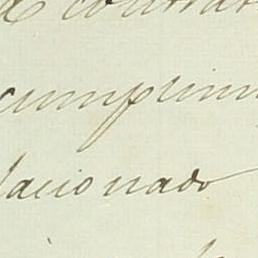 contrat
cumplim
lacionado